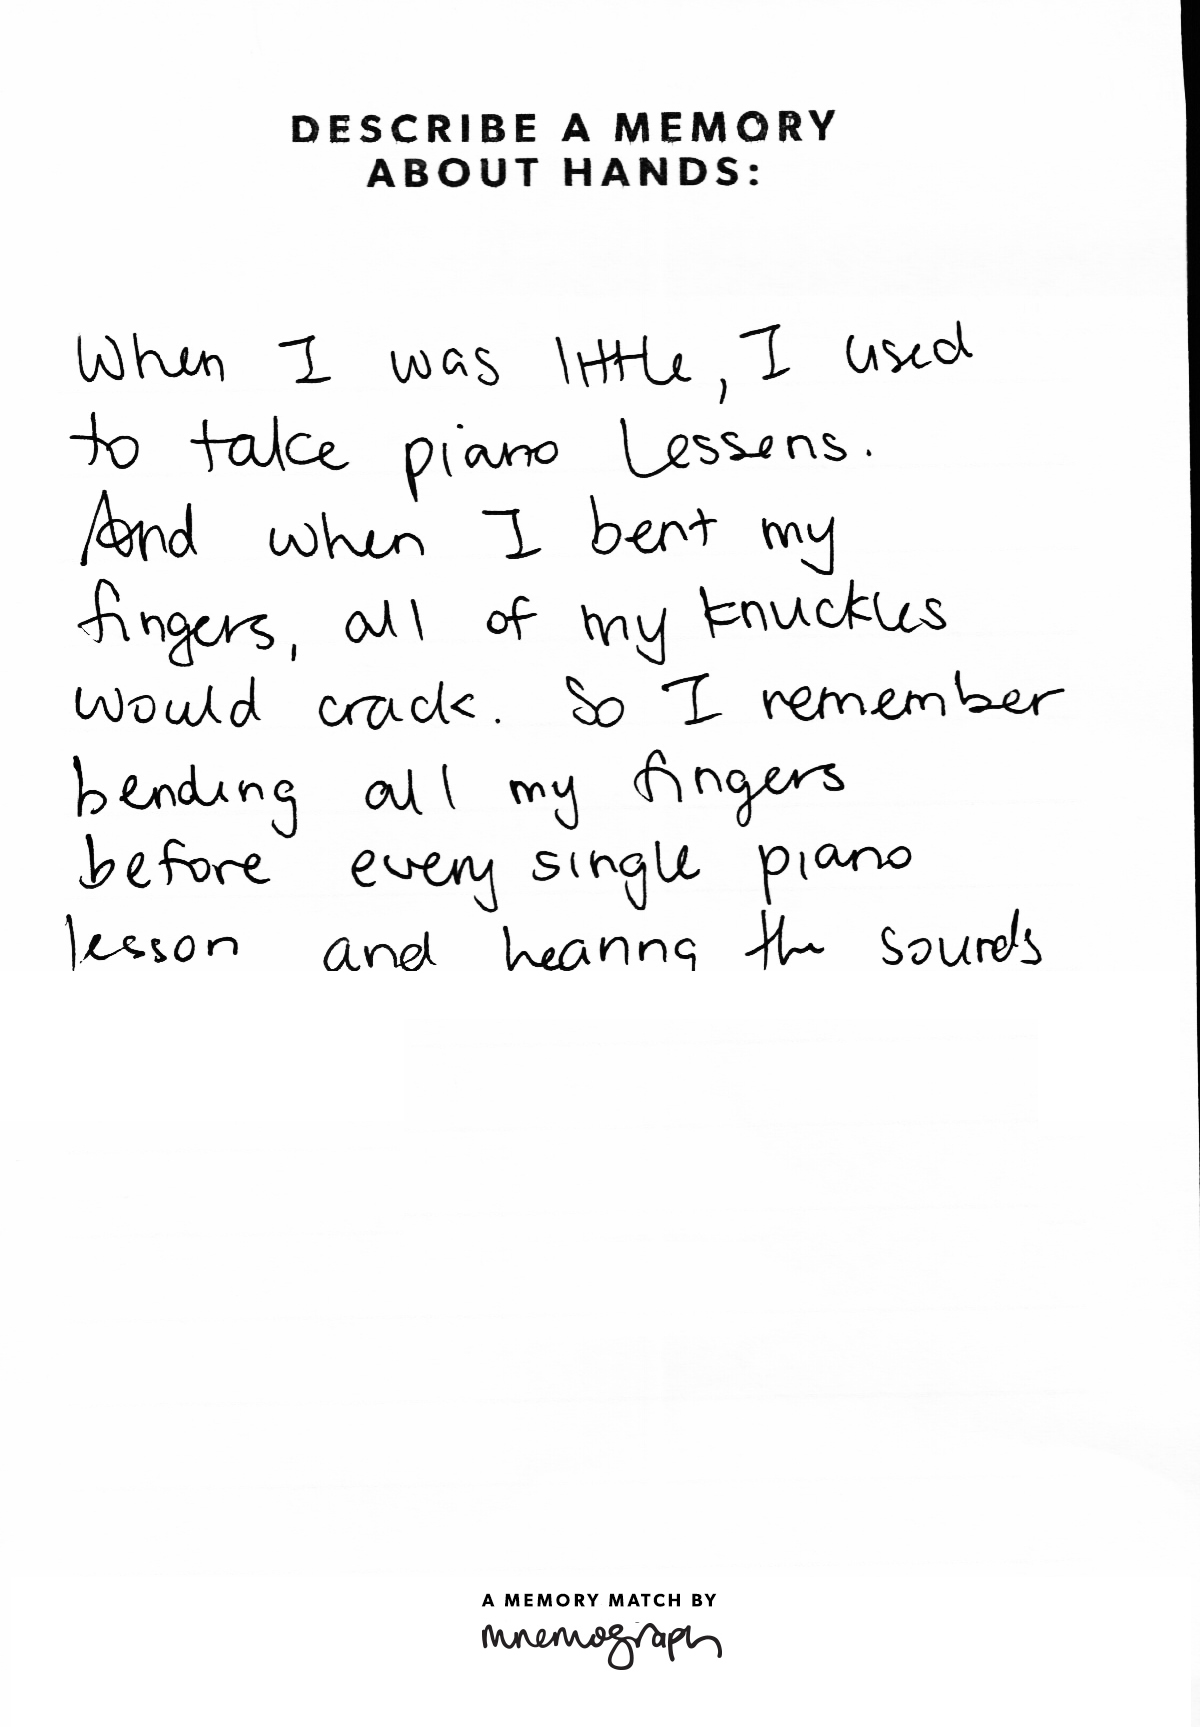 DESCRIBE A MEMORY
ABOUT HANDS:
When I was little, I used
to take piano lessens.
And when I bent my
fingers, all of my knuckles
would crack. So I remember
bending all my fingers
before every single piano
lesson and hearing the sounds
A MEMORY MATCH BY
mnemograph